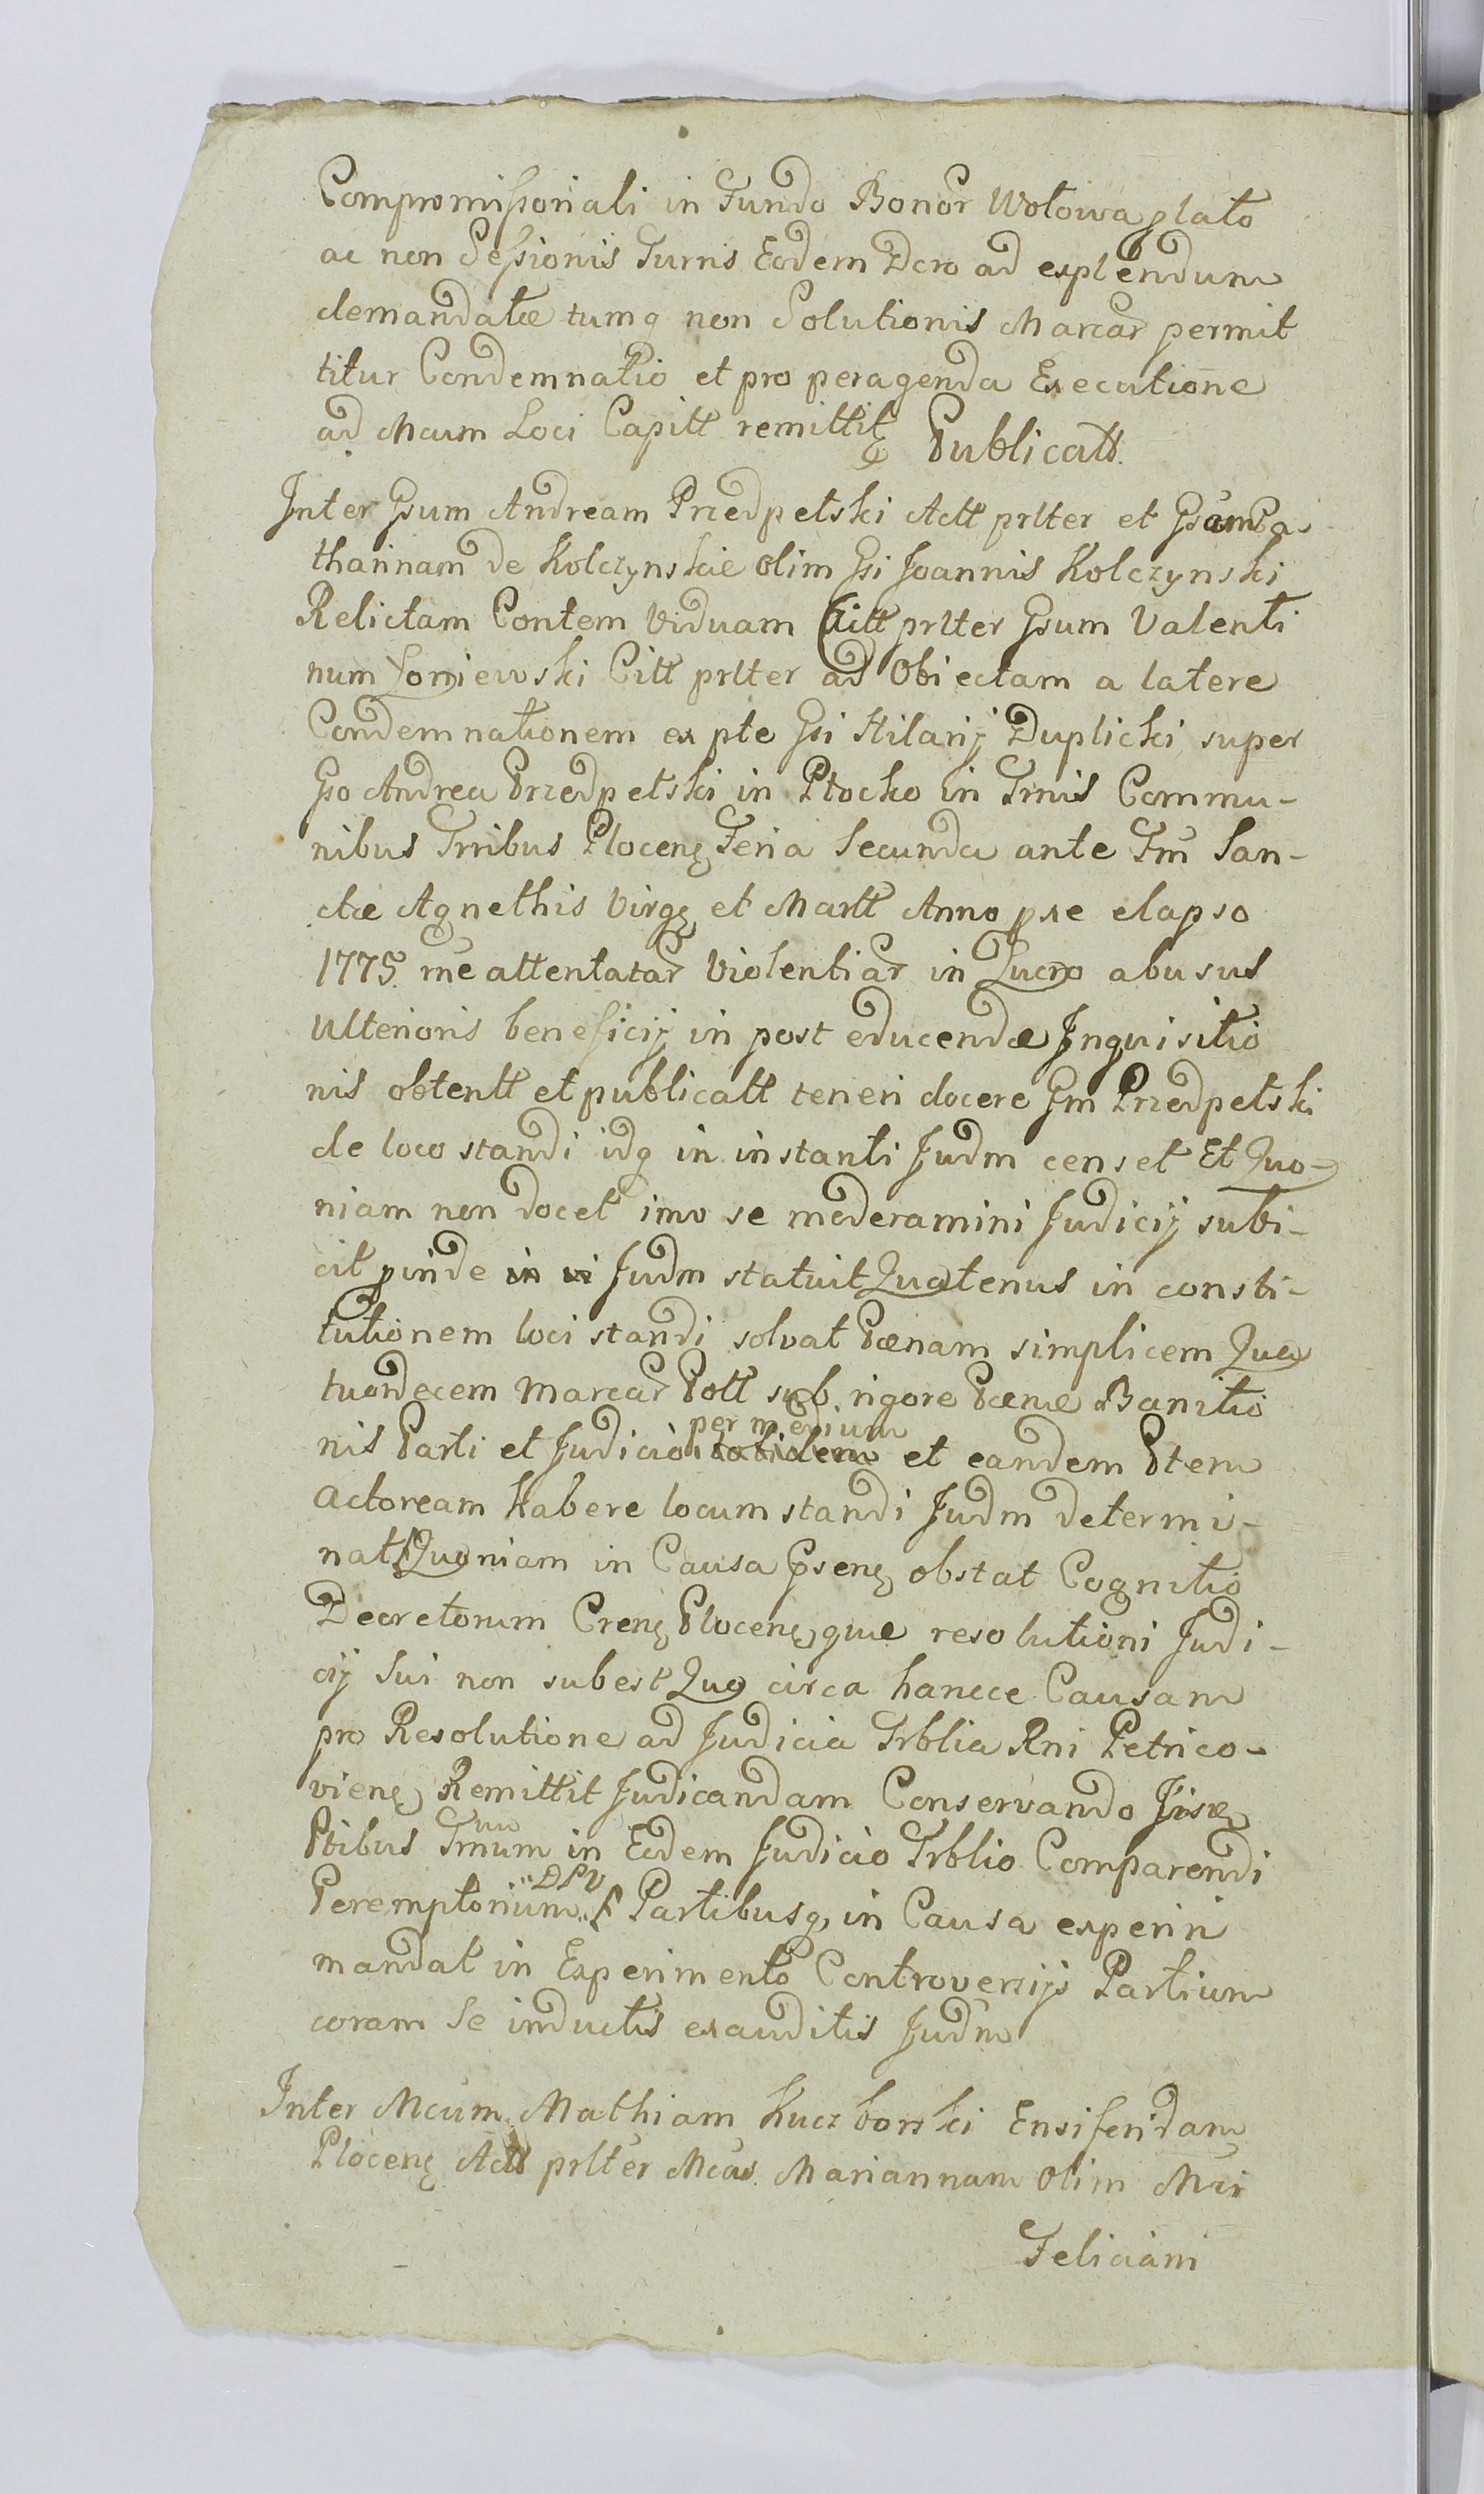 Compromissoriali in Fundo Bonor Wołowa plato
ac non Sessionis Turris Eodem Dcro ad explendum
demandatæ tumq non Solutionis Marcar permit
titur Condemnatio et pro peragenda Executione
ad Mcum Loci Capitt remittit Publicatt.
Inter Gsum Andream Przedpełski Actt prlter et Gsam Ca
tharinam de Kolczynskie olim Gsi Joannis Kolczynski
Relictam Contem Viduam Citt prlter Gsum Valenti
num Łoniewski Citt prlter ad Obiectam a latere
Condemnationem ex pte Gsi Hilarij Duplicki super
Gso Andrea Przedpełski in Płocko in Trnis Commu-
nibus Trribus Plocen Feria Secunda ante Fm San-
ctæ Agnethis Virg et Martt Anno pxe elapso
1775. rne attentatar Violentiar in Lucro abusus
Ulterioris beneficij in post educendæ Inquisitio
nis obtentt et publicatt teneri docere Gm Przedpełski
de loco standi idq in instanti Judm censet Et Quo-
niam non docet imo se moderamini Judicij subi-
cit pinde Judm statuit Quatenus in consti-
tutionem loci standi solvat Pænam simplicem Qua
tuordecem Marcar Poll sub rigore Pænæ Banitio
nis Parti et Judicio totidem per medium et eandem Ptem
actoream Habere locum standi Judm determi-
nat Quoniam in Causa Gsen obstat Cognitio
Decretorum Cren Plocen, quæ resolutioni Judi-
cij Sui non subest Quo circa hancce Causam
pro Resolutione ad Judicia Trblia Rni Petrico-
vien Remittit Judicandam Conservando Jisce
Ptibus Trnum in Eodem Judicio Trblio Comparendi
Peremptorium DPV Partibusq, in Causa experiri
mandat in Experimento Controversijs Partium
coram Se inductis exauditis Judm
Inter Mcum Mathiam Kuczborski Ensiferidam
Plocen Actt prlter Mcas Mariannam Olim Mci
Feliciani